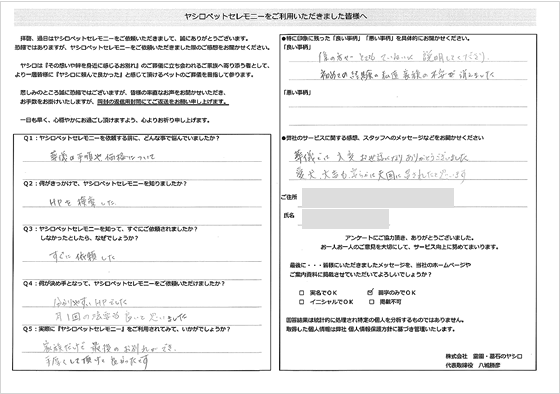 ヤシロペットセレモニーをご利用いただきました皆様へ
拝啓、過日はヤシロペットセレモニーをご依頼いただきまして、誠にありがとうございます。
恐縮ではありますが、ヤシロペットセレモニーをご依頼いただきました際のご感想をお聞かせください。
ヤシロは『その想いや絆を身近に感じるお別れ』のご葬儀に立ち会われるご家族へ寄り添う者として、
より一層皆様に『ヤシロに頼んで良かった』と感じて頂けるペットのご葬儀を目指して参ります。
悲しみのところ誠に恐縮ではございますが、皆様の率直なお声をお聞かせいただきたく、
お手数をお掛けいたしますが、同封の返信用封筒にてご返送をお願い申し上げます。
一日も早く、心穏やかにお過ごし頂けますよう、心よりお祈り申し上げます。
Q1：ヤシロペットセレモニーを依頼する前に、どんな事で悩んでいましたか？
葬儀の手順や価格について
Q2：何がきっかけで、ヤシロペットセレモニーを知りましたか？
HPを検索した
Q3：ヤシロペットセレモニーを知って、すぐにご依頼されましたか？
しなかったとしたら、なぜでしょうか？
すぐに依頼した
Q4：何が決め手となって、ヤシロペットセレモニーをご依頼いただけましたか？
HPでした
月1回の法要も良いと思いました
Q5：実際に『ヤシロペットセレモニー』をご利用されてみて、いかがでしょうか？
家族だけで最後のお別れができ、
手厚くして頂けて
●特に印象に残った「良い事柄」「悪い事柄」を具体的にお聞かせください。
「良い事柄」
ていねいに説明してくださり
初めての経験の私達家族の不安が消えました
「悪い事柄」
●弊社のサービスに関する感想、スタッフへのメッセージなどをお聞かせください
葬儀では大変お世話になりありがとうございました
愛犬
ご住所
氏名
アンケートにご協力頂き、ありがとうございました。
お一人お一人のご意見を大切にして、サービス向上に努めてまいります。
最後に・・・皆様にいただきましたメッセージを、当社のホームページや
ご案内資料に掲載させていただいてよろしいでしょうか？
□ 実名でOK ☑ 苗字のみでOK
□ イニシャルでOK □ 掲載不可
回答結果は統計的に処理され特定の個人を分析するものではありません。
取得した個人情報は弊社 個人情報保護方針に基づき管理いたします。
株式会社 霊園・墓石のヤシロ
代表取締役 八城勝彦